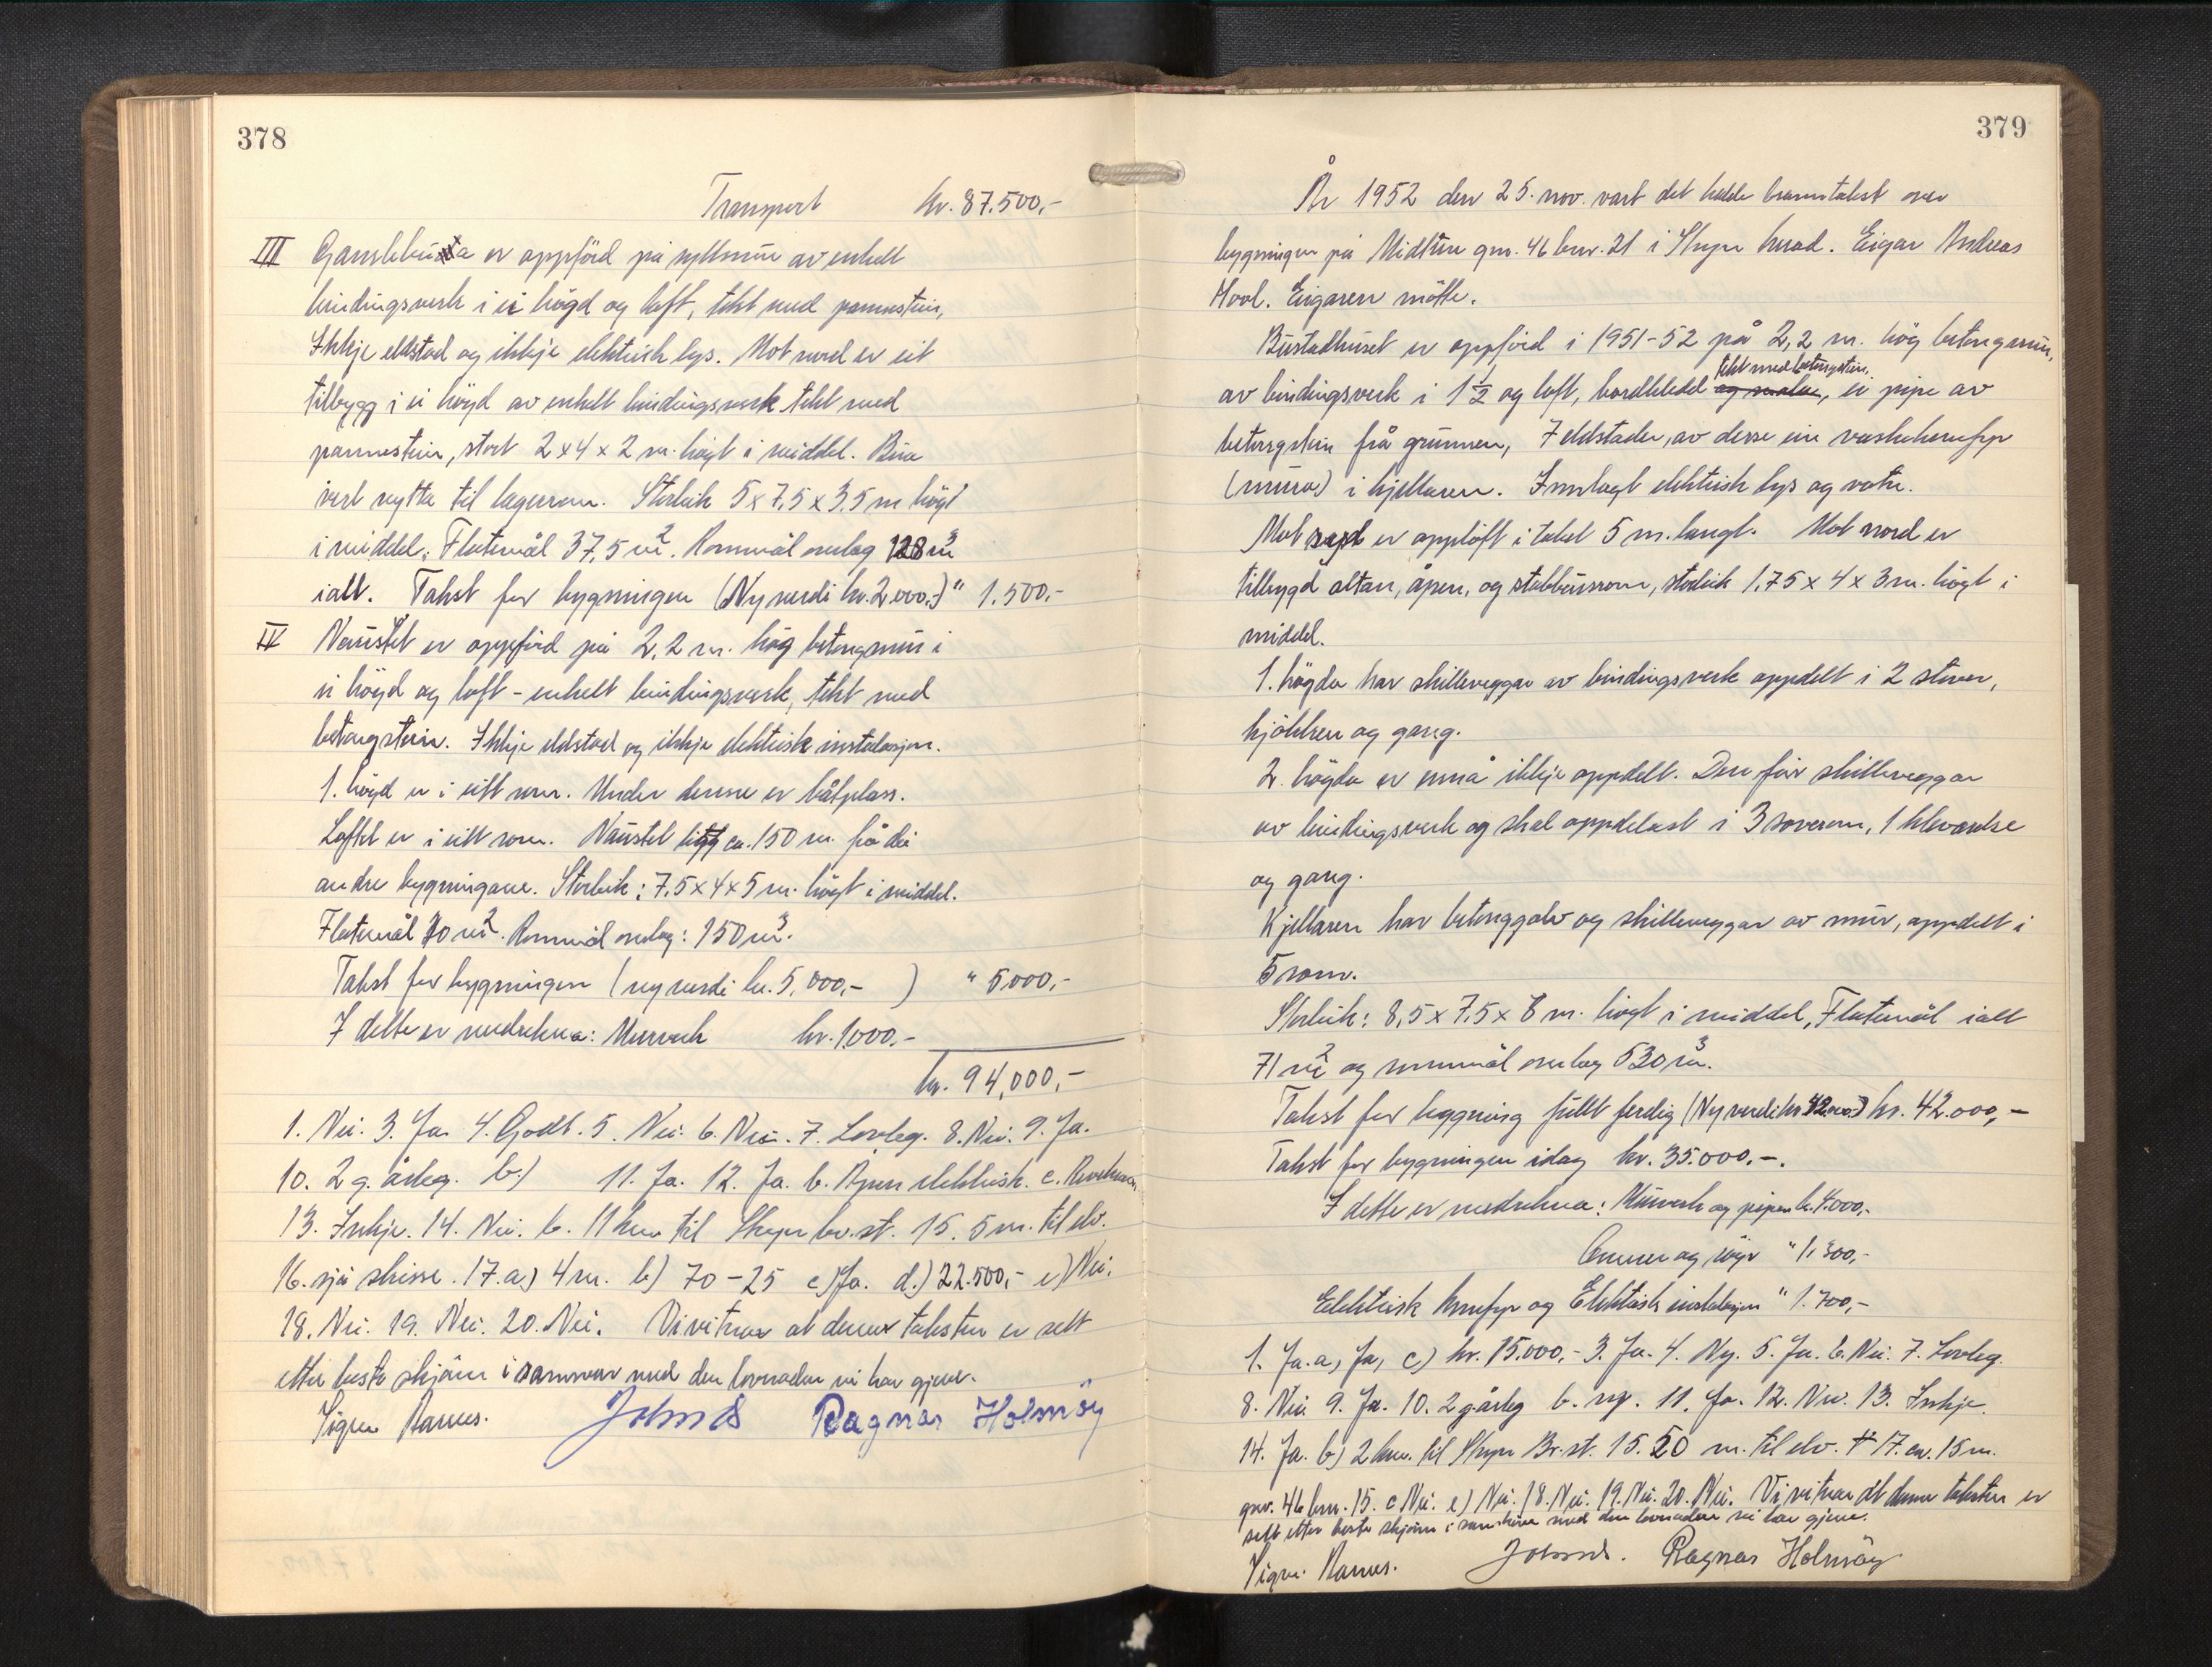 378
Transport kr. 87.500,-
III Gamlebua er oppförd på syllmur av enkelt
bindingsverk i ei högd og loft, tekt med pannestein,
Ikkje eldstad og ikkje elektrisk lys. Mot nord er eit
tilbygg i ei höyd av enkelt bindingsverk tekt med
pannestein, stort 2 x 4 x 2 m. högt i middel. Bua
vert nytta til lagerrom. Storleik 5 x 7,5 x 3,5 m högt
i middel. Flatemål 37,5 m². Rommål omlag 128 m³
ialt. Takst for bygningen (Ny verdi kr. 2.000,-) " 1.500,-
IV Naustet er oppförd på 2,2 m. hög betongmur i
ei höyd og loft - enkelt bindingsverk, tekt med
betongstein. Ikkje eldstad og ikkje elektrisk instalasjon.
1. höyd er i eitt rom. Under denne er båtplass.
Loftet er i eitt rom. Naustet ligg ca. 150 m. frå dei
andre bygningane. Storleik: 7,5 x 4 x 5 m. högt i middel.
Flatemål 30 m². Rommål omlag: 150 m³.
Takst for bygningen (ny verdi kr. 5.000,- ) " 5.000,-
I dette er medrekna: Murverk kr. 1.000.-
kr. 94,000,-
1. Nei. 3. Ja. 4. Godt. 5. Nei. 6. Nei. 7. Lovleg. 8. Nei. 9. Ja.
10. 2 g. årleg. b.) 11. Ja. 12. Ja. b. Åpen elektrisk. c.
13. Inkje. 14. Nei. b. 11 km til br. st. 15. 5 m. til elv.
16. sjå skisse. 17. a) 4 m. b) 70 - 25 c) Ja. d.) 22.500,- e) Nei.
18. Nei. 19. Nei. 20. Nei. Vi vitnar at denne taksten er sett
etter beste skjönn i samsvar med den lovnaden vi har gjeve.
Ragnar Holmöy
379
År 1952 den 25. nov. vart det halde branntakst over
bygningen på Midtun gnr. 46 bnr. 21 i herad. Eigar Andreas
Eigaren mötte.
Bustadhuset er oppförd i 1951-52 på 2,2 m. hög betongmur,
tekt med betongstein
av bindingsverk i 1½ og loft, bordkledd og, ei pipe av
betongstein frå grunnen, 7 eldstader, av desse ein vaskekomfyr
(mura) i kjellaren. Innlagt elektrisk lys og vatn.
Mot er opplöft i taket 5 m. langt. Mot nord er
tilbygd altan, åpen, og stabbursrom, storleik 1,75 x 4 x 3 m. högt i
middel.
1. högda har skilleveggar av bindingsverk oppdelt i 2 stover,
kjökken og gang.
2. högda er ennå ikkje oppdelt. Den får skilleveggar
av bindingsverk og skal oppdelast i 3 soverom, 1
og gang.
Kjellaren har betonggolv og skilleveggar av mur, oppdelt i
5 rom.
Storleik: 8,5 x 7,5 x 8 m. högt i middel, Flatemål ialt
71 m² og rommål omlag 530 m³.
Takst for bygning fullt ferdig (Ny verdi kr 42.000,-) kr. 42.000,-
Takst for bygningen idag kr. 35.000.-.
I dette er medrekna: Murverk og pipen kr. 4.000,-
Omnar og röyr " 1.300,-
Elektrisk komfyr og Elektrisk instalasjon " 1.700,-
1. Ja. a) Ja, c) kr. 15.000,- 3. Ja. 4. Ny. 5. Ja. 6. Nei. 7. Lovleg.
8. Nei. 9. Ja. 10. 2 g årleg b. ny. 11. Ja. 12. Nei. 13. Inkje.
14. Ja. b) 2 km. til Br. st. 15. 50 m. til elv. 17. ca. 15 m.
gnr. 46 bnr. 15. c Nei. e) Nei. 18. Nei. 19. Nei. 20. Nei. Vi vitnar at denne taksten er
sett etter beste skjönn i samsvar med den lovnaden vi har gjeve.
Ragnar Holmöy